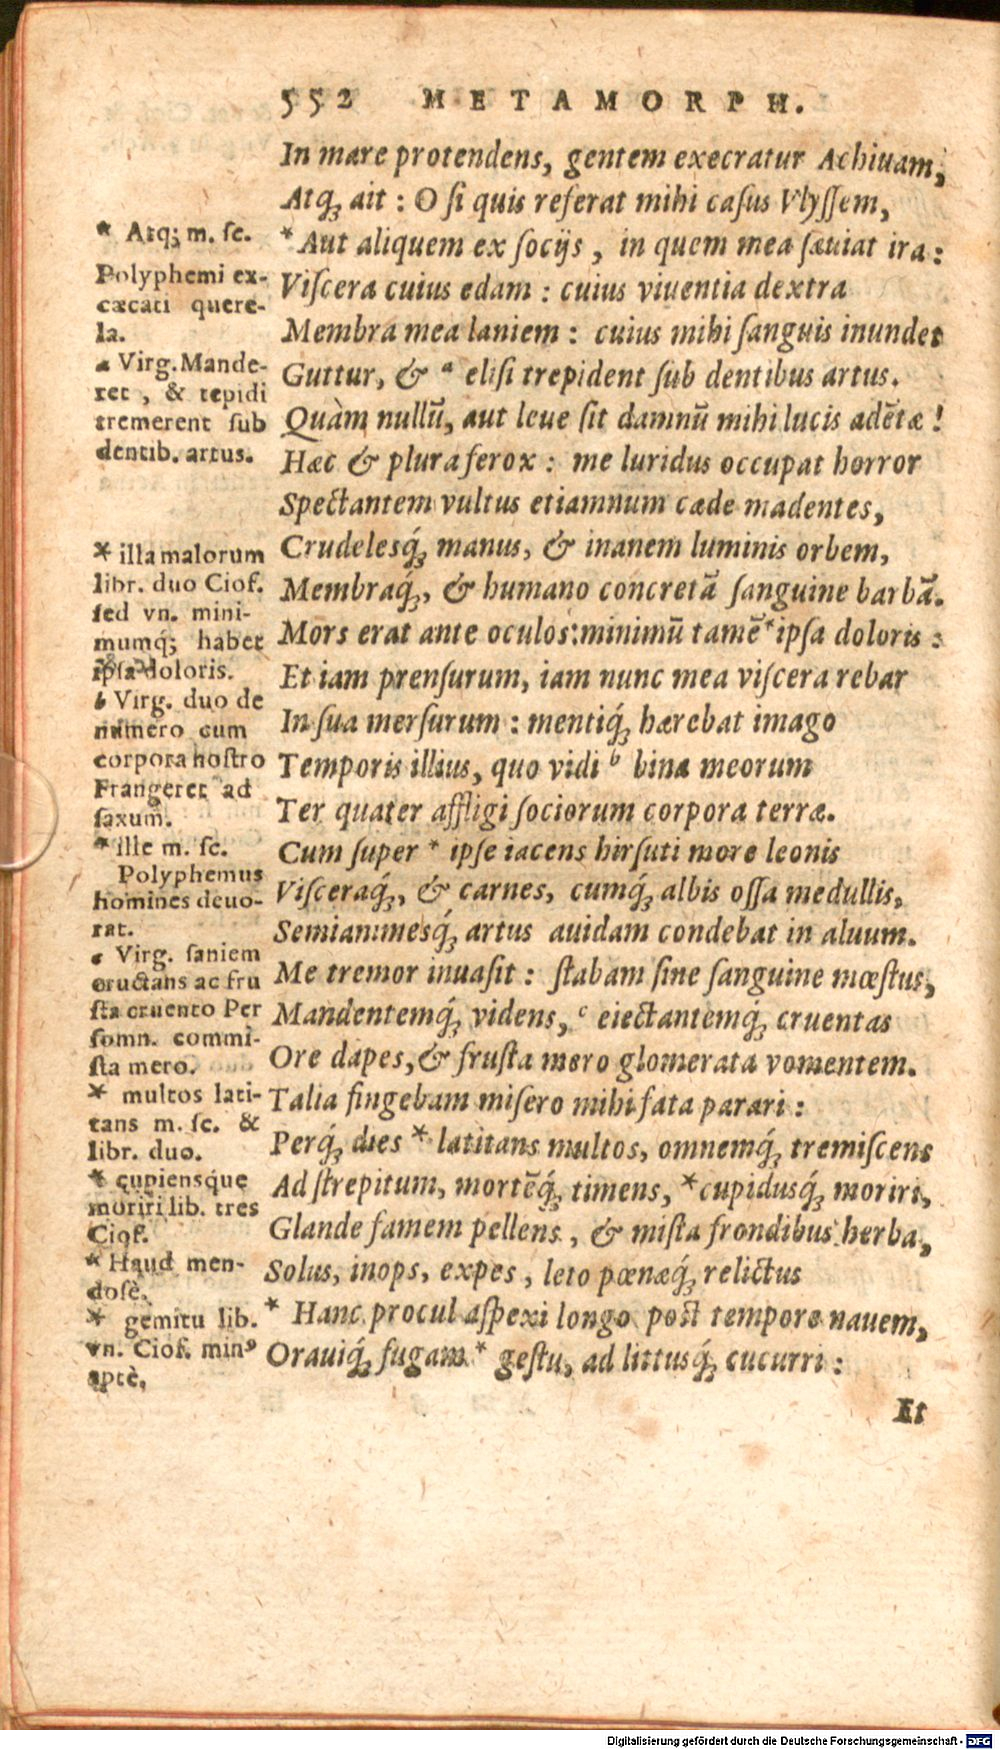 552 METAMORPH.
In mare protendens, gentem execratur Achiuam,
Atq́; ait : O si quis referat mihi casus Vlyssem,
* Aut aliquem ex socijs , in quem mea sæuiat ira :
Viscera cuius edam : cuius viuentia dextra
Membra mea laniem : cuius mihi sanguis inundet
Guttur, & ᵃ elisi trepident sub dentibus artus.
Quàm nullũ, aut leue sit damnũ mihi lucis adẽtæ !
Hæc & plura ferox : me luridus occupat horror
Spectantem vultus etiamnum cæde madentes,
Crudelesq́; manus, & inanem luminis orbem,
Membraq́;, & humano concretã sanguine barbã.
Mors erat ante oculos: minimũ tamẽ * ipsa doloris :
Et iam prensurum, iam nunc mea viscera rebar
In sua mersurum : mentiq́; hærebat imago
Temporis illius, quo vidi ᵇ bina meorum
Ter quater affligi sociorum corpora terræ.
Cum super * ipse iacens hirsuti more leonis
Visceraq́;, & carnes, cumq́; albis ossa medullis,
Semianimesq́; artus auidam condebat in aluum.
Me tremor inuasit : stabam sine sanguine mœstus,
Mandentemq́; videns, ᶜ eiectantemq́; cruentas
Ore dapes, & frusta mero glomerata vomentem.
Talia fingebam misero mihi fata parari :
Perq́; dies * latitans multos, omnemq́; tremiscens
Ad strepitum, mortẽq́; timens, * cupidusq́; moriri,
Glande famem pellens , & mista frondibus herba,
Solus, inops, expes , leto pœnæq́; relictus
* Hanc procul aspexi longo post tempore nauem,
Orauiq́; fugam * gestu, ad littusq́; cucurri :
Et
* Atq; m. sc.
Polyphemi ex-
cæcati quere-
la.
a Virg. Mande-
ret , & tepidi
tremerent sub
dentib. artus.
* illa malorum
libr. duo Ciof.
sed vn. mini-
mumq; habet
ipsa doloris.
b Virg. duo de
numero cum
corpora nostro
Frangeret ad
saxum.
* ille m. sc.
Polyphemus
homines deuo-
rat.
c Virg. saniem
eructans ac fru
sta cruento Per
somn. commi-
sta mero.
* multos lati-
tans m. sc. &
libr. duo.
* cupiensque
moriri lib. tres
Ciof.
* Haud men-
dosè.
* gemitu lib.
vn. Ciof. minꝰ
aptè,
Digitalisierung gefördert durch die Deutsche Forschungsgemeinschaft - DFG